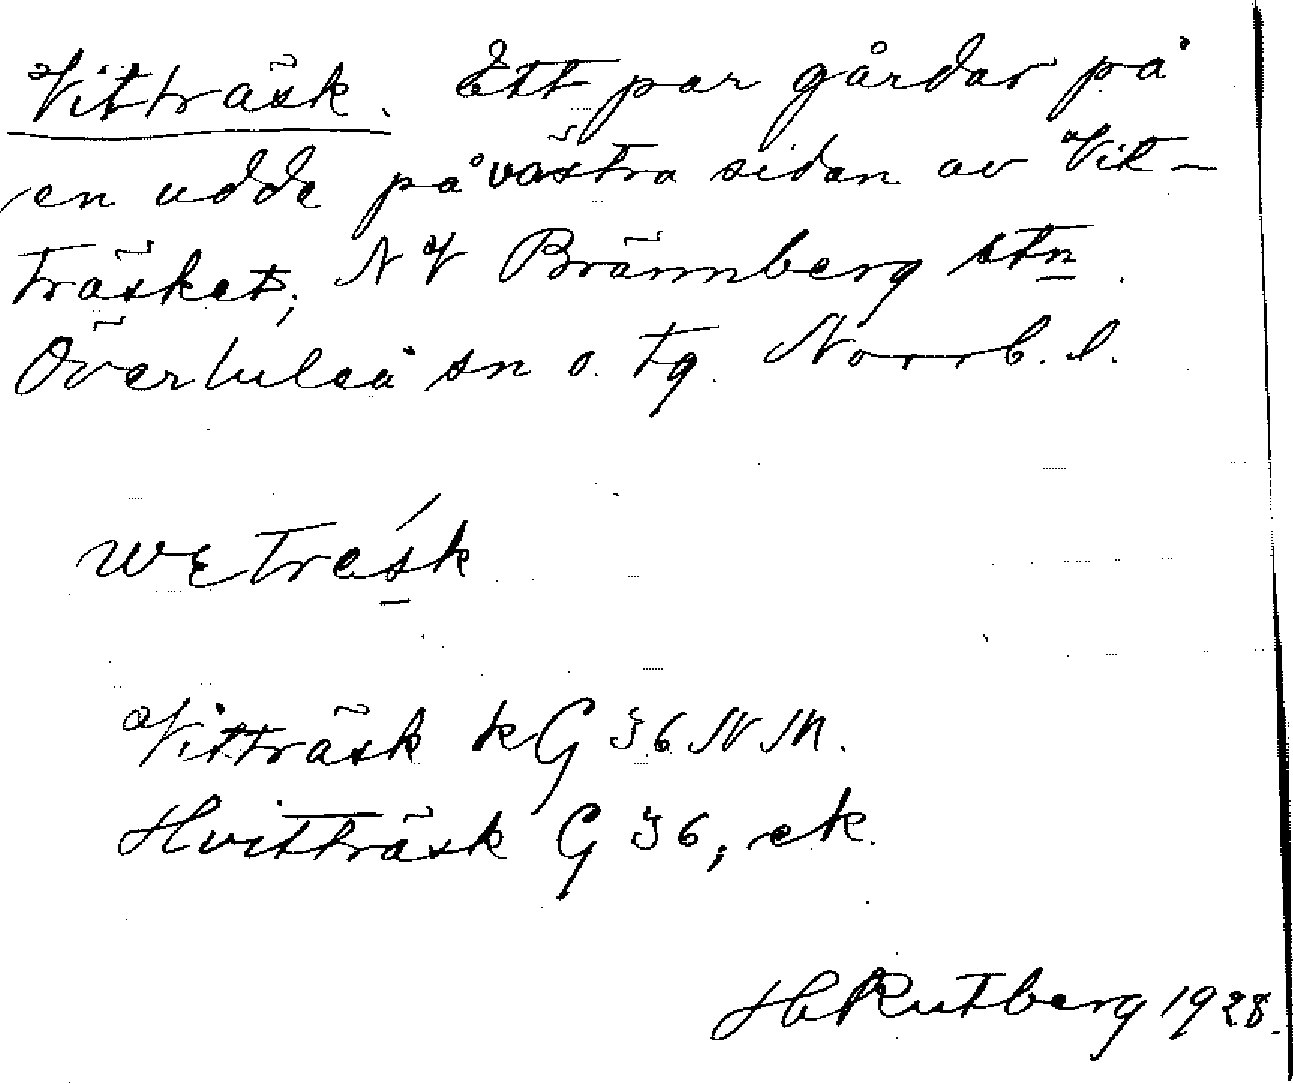 Vitträsk. Ett par gårdar på
en udde på västra sidan av Vit-
träsket, NV Brännberg stn.
Överluleå sn o. tg. Norrb. l.
wεtrask
Vitträsk kG 36 NM.
Hvitträsk G 36, ek.
H Rutberg 1928.